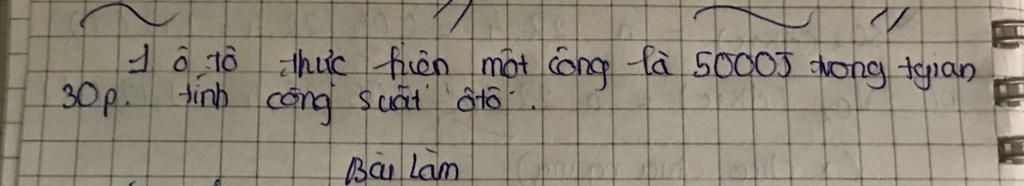 1 ô tô thực hiện một công là 5000J trong tgian
30p. tính công suất ôtô.
Bài Làm